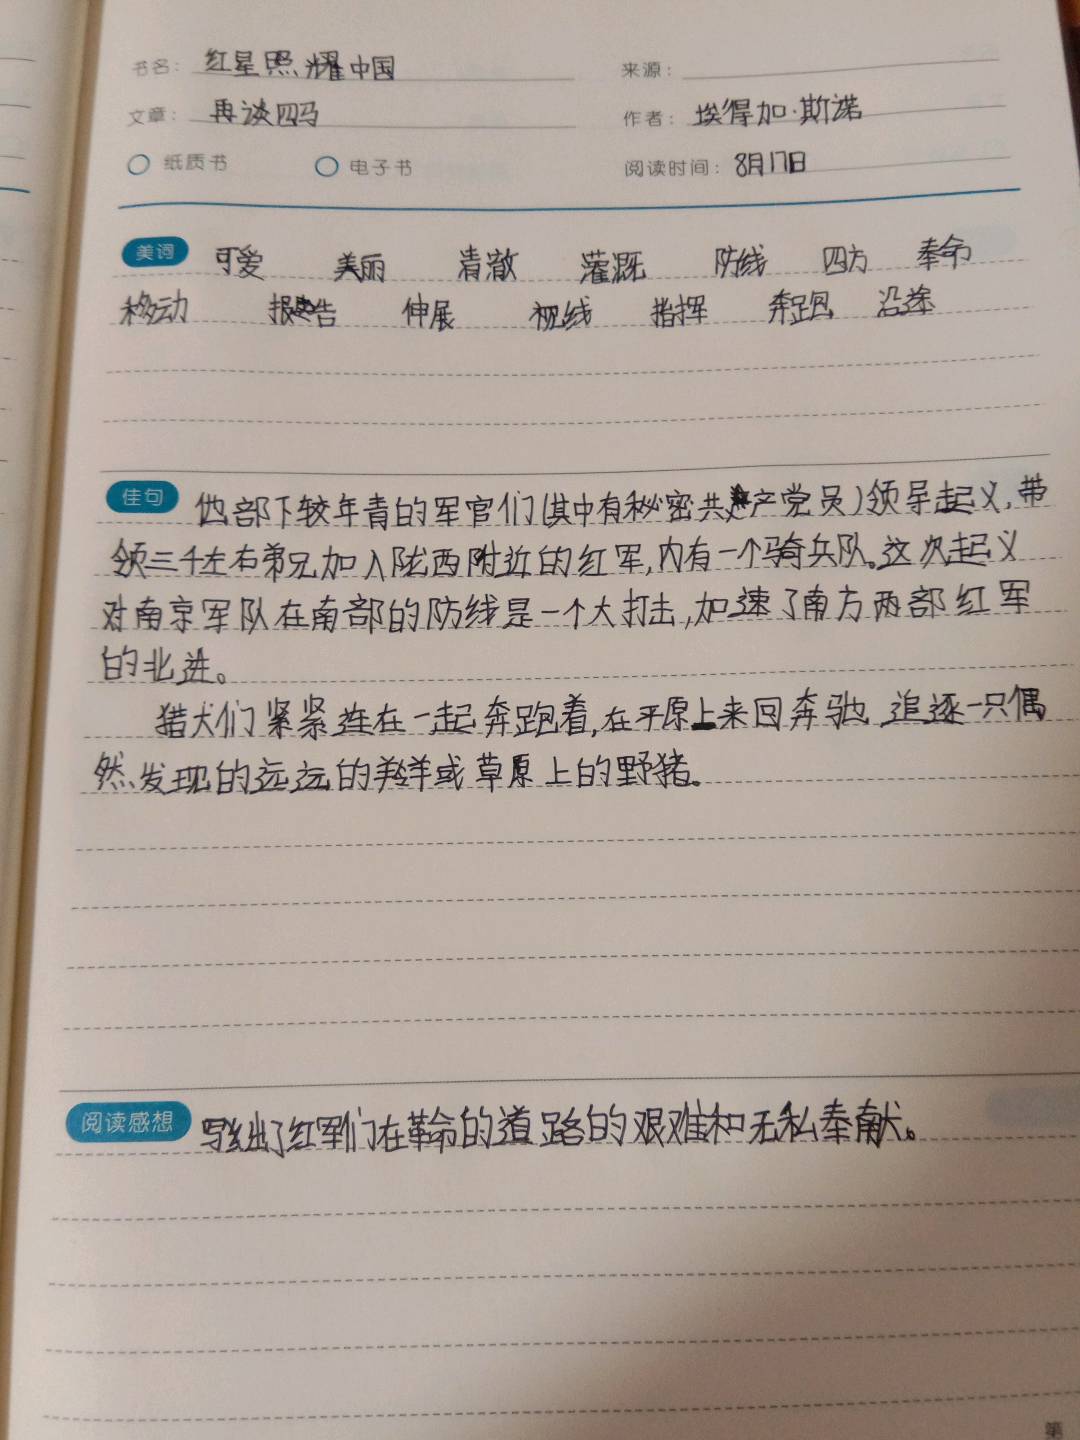 书名：红星照耀中国 来源：
文章：再谈四马 作者：埃得加·斯诺
纸质书 电子书 阅读时间：8月17日
美词 可爱 美丽 清澈 灌溉 防线 四方 奉命
移动 报告 伸展 视线 指挥 奔跑 沿途
佳句 他部下较年青的军官们(其中有秘密共产党员)领导起义,带
领三千左右弟兄加入陇西附近的红军,内有一个骑兵队。这次起义
对南京军队在南部的防线是一个大打击,加速了南方两部红军
的北进。
猎犬们紧紧连在一起奔跑着,在平原上来回奔驰,追逐一只偶
然发现的远远的羚羊或草原上的野猪。
阅读感想 写出了红军们在革命的道路的艰难和无私奉献。
第